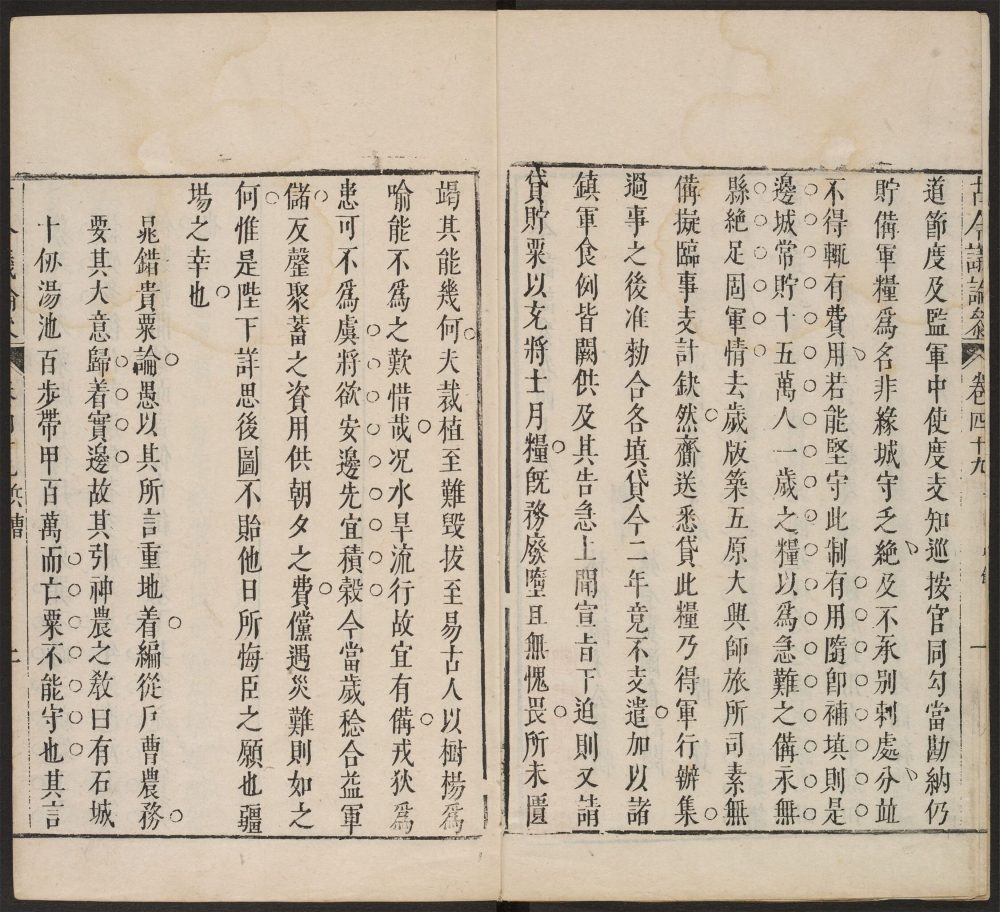 古今議論參 卷四十九
道節度及監軍中使度支知巡按官同勾當勘納仍
貯備軍糧爲名非緣城守乏絶及不承别剌處分並
不得輒有費用若能堅守此制有用隨卽補填則是
邊城常貯十五萬人一歲之糧以爲急難之備永無
縣絶足固軍情去歲版築五原大興師旅所司素無
備擬臨事支計缺然齎送悉貸此糧乃得軍行辦集
過事之後准勑合各填貸今二年竟不支遣加以諸
鎮軍食例皆闕供及其告急上聞宣旨下迫則又請
貸貯粟以充將士月糧旣務廢墮且無愧畏所未匱
竭其能幾何夫裁植至難毀拔至易古人以樹楊爲
喻能不爲之歎惜哉况水旱流行故宜有備戎狄爲
患可不爲虞將欲安邊先宜積穀今當歲稔合益軍
儲反罄聚蓄之資用供朝夕之費儻遇災難則如之
何惟是陛下詳思後圖不貽他日所悔臣之願也疆
場之幸也
晁錯貴粟論愚以其所言重地着編從戶曹農務
要其大意歸着實邊故其引神農之敎曰有石城
十仞湯池百步帶甲百萬而亡粟不能守也其言